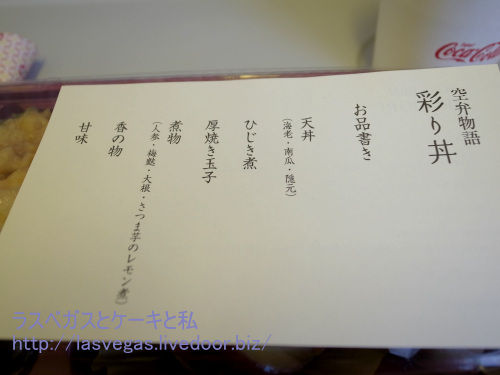 空弁物語
彩り丼
お品書き
天丼
(海老・南瓜・隠元)
ひじき煮
厚焼き玉子
煮物
(人参・梅麩・大根・さつま芋のレモン煮)
香の物
甘味
Coca-Cola
ラスベガスとケーキと私
http://lasvegas.livedoor.biz/